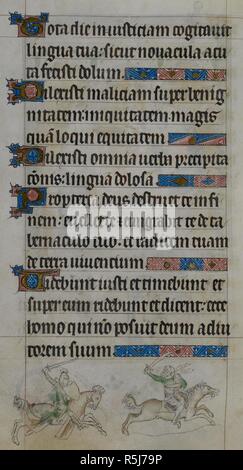 Tota die iniusticiam cogitauit
lingua tua: sicut nouacula acu
ta fecisti dolum.
Dilexisti maliciam super benig
nitatem: iniquitatem magis
quam loqui equitatem
Dilexisti omnia uerba precipita
cionis: lingua dolosa
Propterea deus destruet te in fi
nem: euellet te et emigrabit te de ta
bernaculo tuo: et radicem tuam
de terra uiuentium
Uidebunt iusti et timebunt et
super eum ridebunt et dicent: ecce
homo qui non posuit deum adiu
torem suum.
alamy
R5J79P